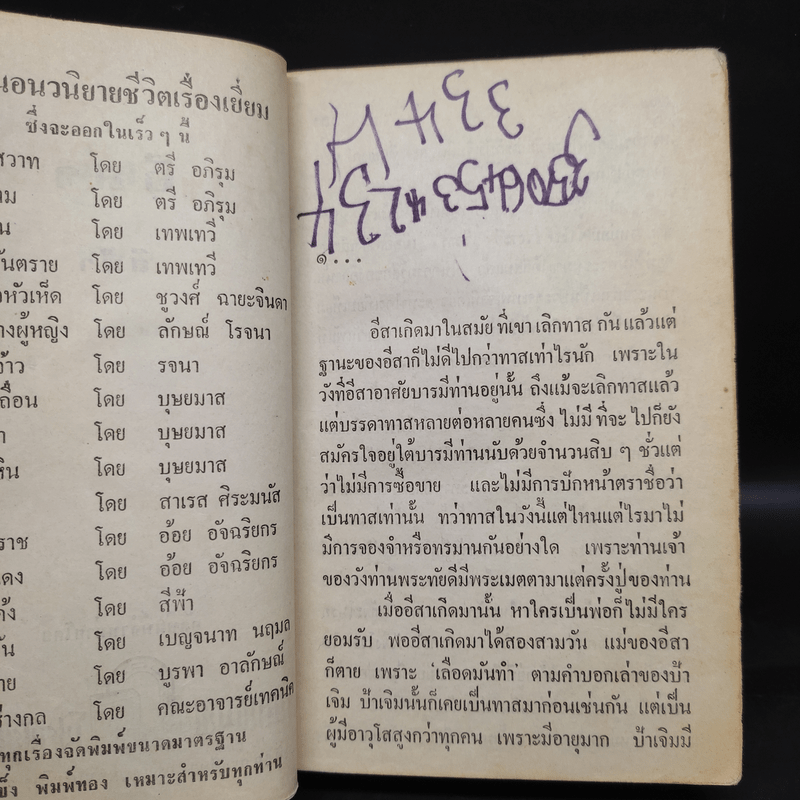 นอนวนิยายชีวิตเรื่องเยี่ยม
ซึ่งจะออกในเร็ว ๆ นี้
สวาท โดย ตรี อภิรุม
โดย ตรี อภิรุม
โดย เทพเทวี
อันตราย โดย เทพเทวี
หัวเห็ด โดย ชูวงศ์ ฉายะจินดา
ผู้หญิง โดย ลักษณ์ โรจนา
โดย รจนา
โดย บุษยมาส
โดย บุษยมาส
โดย บุษยมาส
โดย สาเรส ศิระมนัส
ราช โดย อ้อย อัจฉริยกร
แดง โดย อ้อย อัจฉริยกร
โดย สีฟ้า
โดย เบญจนาท นฤมล
โดย บูรพา อาลักษณ์
ร่างกล โดย คณะอาจารย์เทคนิค
ทุกเรื่องจัดพิมพ์ขนาดมาตรฐาน
แข็ง พิมพ์ทอง เหมาะสำหรับทุกท่าน
๑...
อีสาเกิดมาในสมัย ที่เขา เลิกทาส กัน แล้วแต่
ฐานะของอีสาก็ไม่ดีไปกว่าทาสเท่าไรนัก เพราะใน
วังที่อีสาอาศัยบารมีท่านอยู่นั้น ถึงแม้จะเลิกทาสแล้ว
แต่บรรดาทาสหลายต่อหลายคนซึ่ง ไม่มี ที่จะ ไปก็ยัง
สมัครใจอยู่ใต้บารมีท่านนับด้วยจำนวนสิบ ๆ ชั่วแต่
ว่าไม่มีการซื้อขาย และไม่มีการปักหน้าตราชื่อว่า
เป็นทาสเท่านั้น ทว่าทาสในวังนี้แต่ไหนแต่ไรมาไม่
มีการจองจำหรือทรมานกันอย่างใด เพราะท่านเจ้า
ของวังท่านพระทัยดีมีพระเมตตามาแต่ครั้งปู่ของท่าน
เมื่ออีสาเกิดมานั้น หาใครเป็นพ่อก็ไม่มีใคร
ยอมรับ พออีสาเกิดมาได้สองสามวัน แม่ของอีสา
ก็ตาย เพราะ ‘เลือดมันทำ’ ตามคำบอกเล่าของป้า
เจิม ป้าเจิมนั้นก็เคยเป็นทาสมาก่อนเช่นกัน แต่เป็น
ผู้มีอาวุโสสูงกว่าทุกคน เพราะมีอายุมาก ป้าเจิมมี